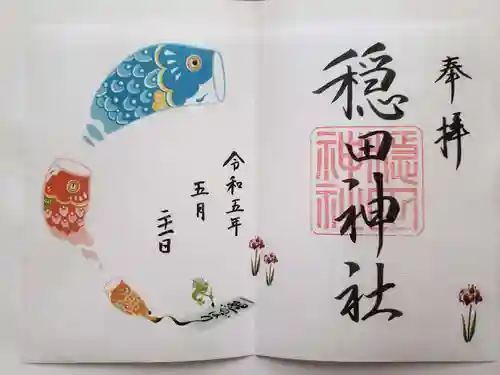 奉拝
穏田神社
穏田
神社
令和五年
五月
二十一日